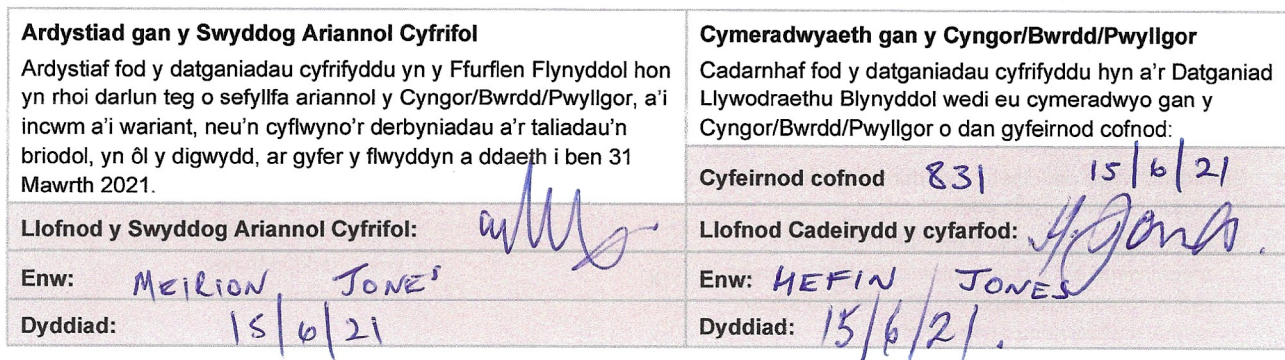 Ardystiad gan y Swyddog Ariannol Cyfrifol
Ardystiaf fod y datganiadau cyfrifyddu yn y Ffurflen Flynyddol hon
yn rhoi darlun teg o sefyllfa ariannol y Cyngor/Bwrdd/Pwyllgor, a'i
incwm a'i wariant, neu'n cyflwyno'r derbyniadau a'r taliadau'n
briodol, yn ôl y digwydd, ar gyfer y flwyddyn a ddaeth i ben 31
Mawrth 2021.
Llofnod y Swyddog Ariannol Cyfrifol:
Enw: MEIRION JONES
Dyddiad: 15/6/21
Cymeradwyaeth gan y Cyngor/Bwrdd/Pwyllgor
Cadarnhaf fod y datganiadau cyfrifyddu hyn a'r Datganiad
Llywodraethu Blynyddol wedi eu cymeradwyo gan y
Cyngor/Bwrdd/Pwyllgor o dan gyfeirnod cofnod:
Cyfeirnod cofnod 831 15/6/21
Llofnod Cadeirydd y cyfarfod: H. Jones.
Enw: HEFIN JONES
Dyddiad: 15/6/21.